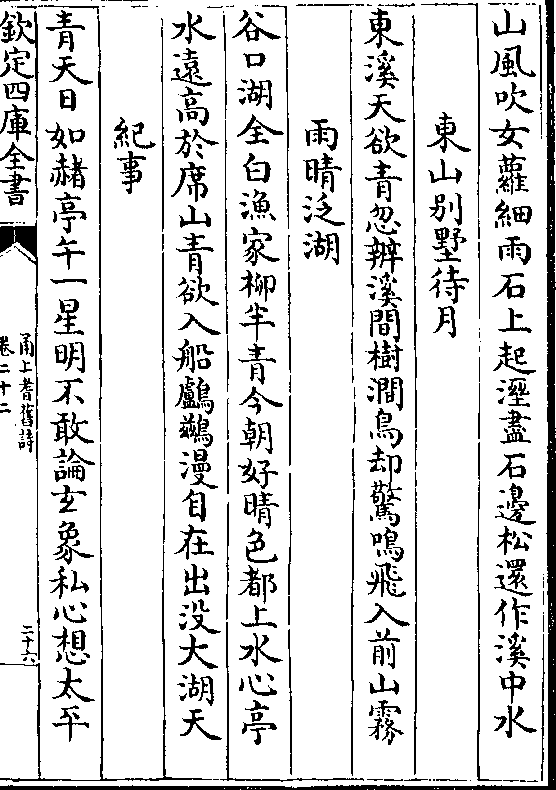 山風吹女蘿細雨石上起溼盡石邊松還作溪中水
東山別墅待月
東溪天欲青忽辨溪間樹澗鳥却驚鳴飛入前山霧
雨晴泛湖
谷口湖全白漁家柳半青今朝好晴色都上水心亭
水遠高於席山青欲入船鸕鷀漫自在出没大湖天
紀事
青天日如赭亭午一星明不敢論玄象私心想太平
欽定四庫全書
甬上耆舊詩
卷二十二
二十六